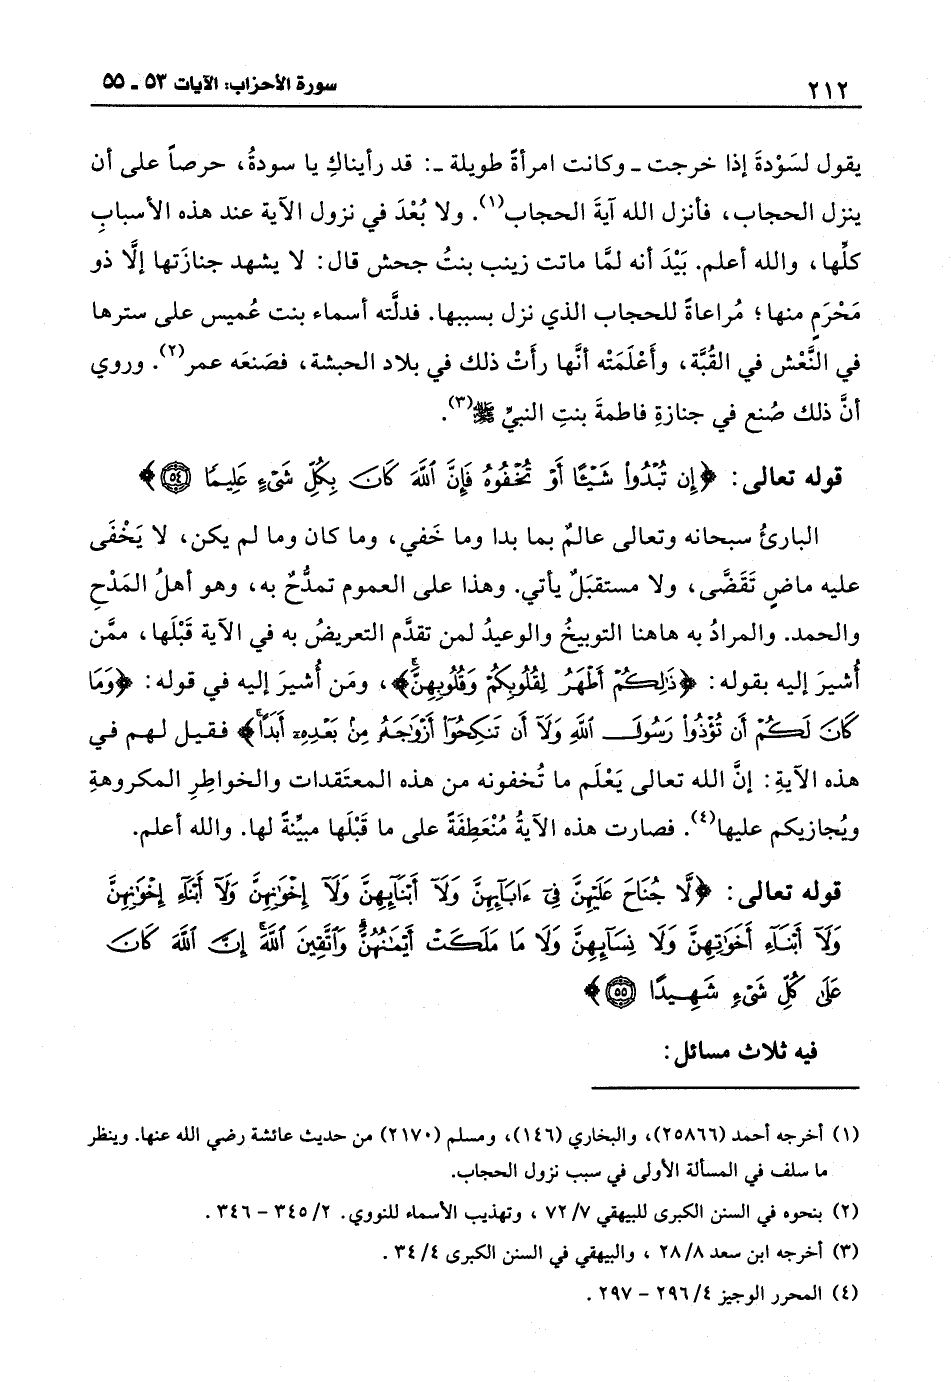 ٢١٢
سورة الأحزاب: الآيات ٥٣ ـ ٥٥
يقول لسَوْدةَ إذا خرجت ـ وكانت امرأةً طويلة ـ: قد رأيناكِ يا سودةُ، حرصاً على أن
ينزل الحجاب، فأنزل الله آيةَ الحجاب(١). ولا بُعْدَ في نزول الآية عند هذه الأسبابِ
كلِّها، والله أعلم. بَيْدَ أنه لمَّا ماتت زينب بنتُ جحش قال: لا يشهد جنازَتها إلَّا ذو
مَحْرَمٍ منها؛ مُراعاةً للحجاب الذي نزل بسببها. فدلَّته أسماء بنت عُميس على سترها
في النَّعْش في القُبَّة، وأَعْلَمَتْه أنَّها رأَتْ ذلك في بلاد الحبشة، فصَنعَه عمر(٢). وروي
أنَّ ذلك صُنع في جنازةِ فاطمةَ بنتِ النبيِّ ﷺ(٣).
قوله تعالى: ﴿إِن تُبْدُوا۟ شَيْـًٔا أَوْ تُخْفُوهُ فَإِنَّ ٱللَّهَ كَانَ بِكُلِّ شَىْءٍ عَلِيمًا ٥٤﴾
البارئُ سبحانه وتعالى عالمٌ بما بدا وما خَفي، وما كان وما لم يكن، لا يَخْفَى
عليه ماضٍ تَقَضَّى، ولا مستقبَلٌ يأتي. وهذا على العموم تمدُّحٌ به، وهو أهلُ المَدْحِ
والحمد. والمرادُ به هاهنا التوبيخُ والوعيدُ لمن تقدَّم التعريضُ به في الآية قَبْلَها، ممَّن
أُشيرَ إليه بقوله: ﴿ذَٰلِكُمْ أَطْهَرُ لِقُلُوبِكُمْ وَقُلُوبِهِنَّ﴾، ومَن أُشيرَ إليه في قوله: ﴿وَمَا
كَانَ لَكُمْ أَن تُؤْذُوا۟ رَسُولَ ٱللَّهِ وَلَآ أَن تَنكِحُوٓا۟ أَزْوَٰجَهُۥ مِنۢ بَعْدِهِۦٓ أَبَدًا﴾ فقيل لهم في
هذه الآيةِ: إنَّ الله تعالى يَعْلَم ما تُخفونه من هذه المعتَقدات والخواطِرِ المكروهةِ
ويُجازيكم عليها(٤). فصارت هذه الآيةُ مُنْعَطِفَةً على ما قَبْلَها مبيِّنةً لها. والله أعلم.
قوله تعالى: ﴿لَّا جُنَاحَ عَلَيْهِنَّ فِىٓ ءَابَآئِهِنَّ وَلَآ أَبْنَآئِهِنَّ وَلَآ إِخْوَٰنِهِنَّ وَلَآ أَبْنَآءِ إِخْوَٰنِهِنَّ
وَلَآ أَبْنَآءِ أَخَوَٰتِهِنَّ وَلَا نِسَآئِهِنَّ وَلَا مَا مَلَكَتْ أَيْمَٰنُهُنَّ ۗ وَٱتَّقِينَ ٱللَّهَ ۚ إِنَّ ٱللَّهَ كَانَ
عَلَىٰ كُلِّ شَىْءٍ شَهِيدًا ٥٥﴾
فيه ثلاث مسائل:
(١) أخرجه أحمد (٢٥٨٦٦)، والبخاري (١٤٦)، ومسلم (٢١٧٠) من حديث عائشة رضي الله عنها. وينظر
ما سلف في المسألة الأولى في سبب نزول الحجاب.
(٢) بنحوه في السنن الكبرى للبيهقي ٧/ ٧٢ ، وتهذيب الأسماء للنووي. ٢/ ٣٤٥ - ٣٤٦ .
(٣) أخرجه ابن سعد ٨/ ٢٨ ، والبيهقي في السنن الكبرى ٤/ ٣٤ .
(٤) المحرر الوجيز ٤/ ٢٩٦ - ٢٩٧ .